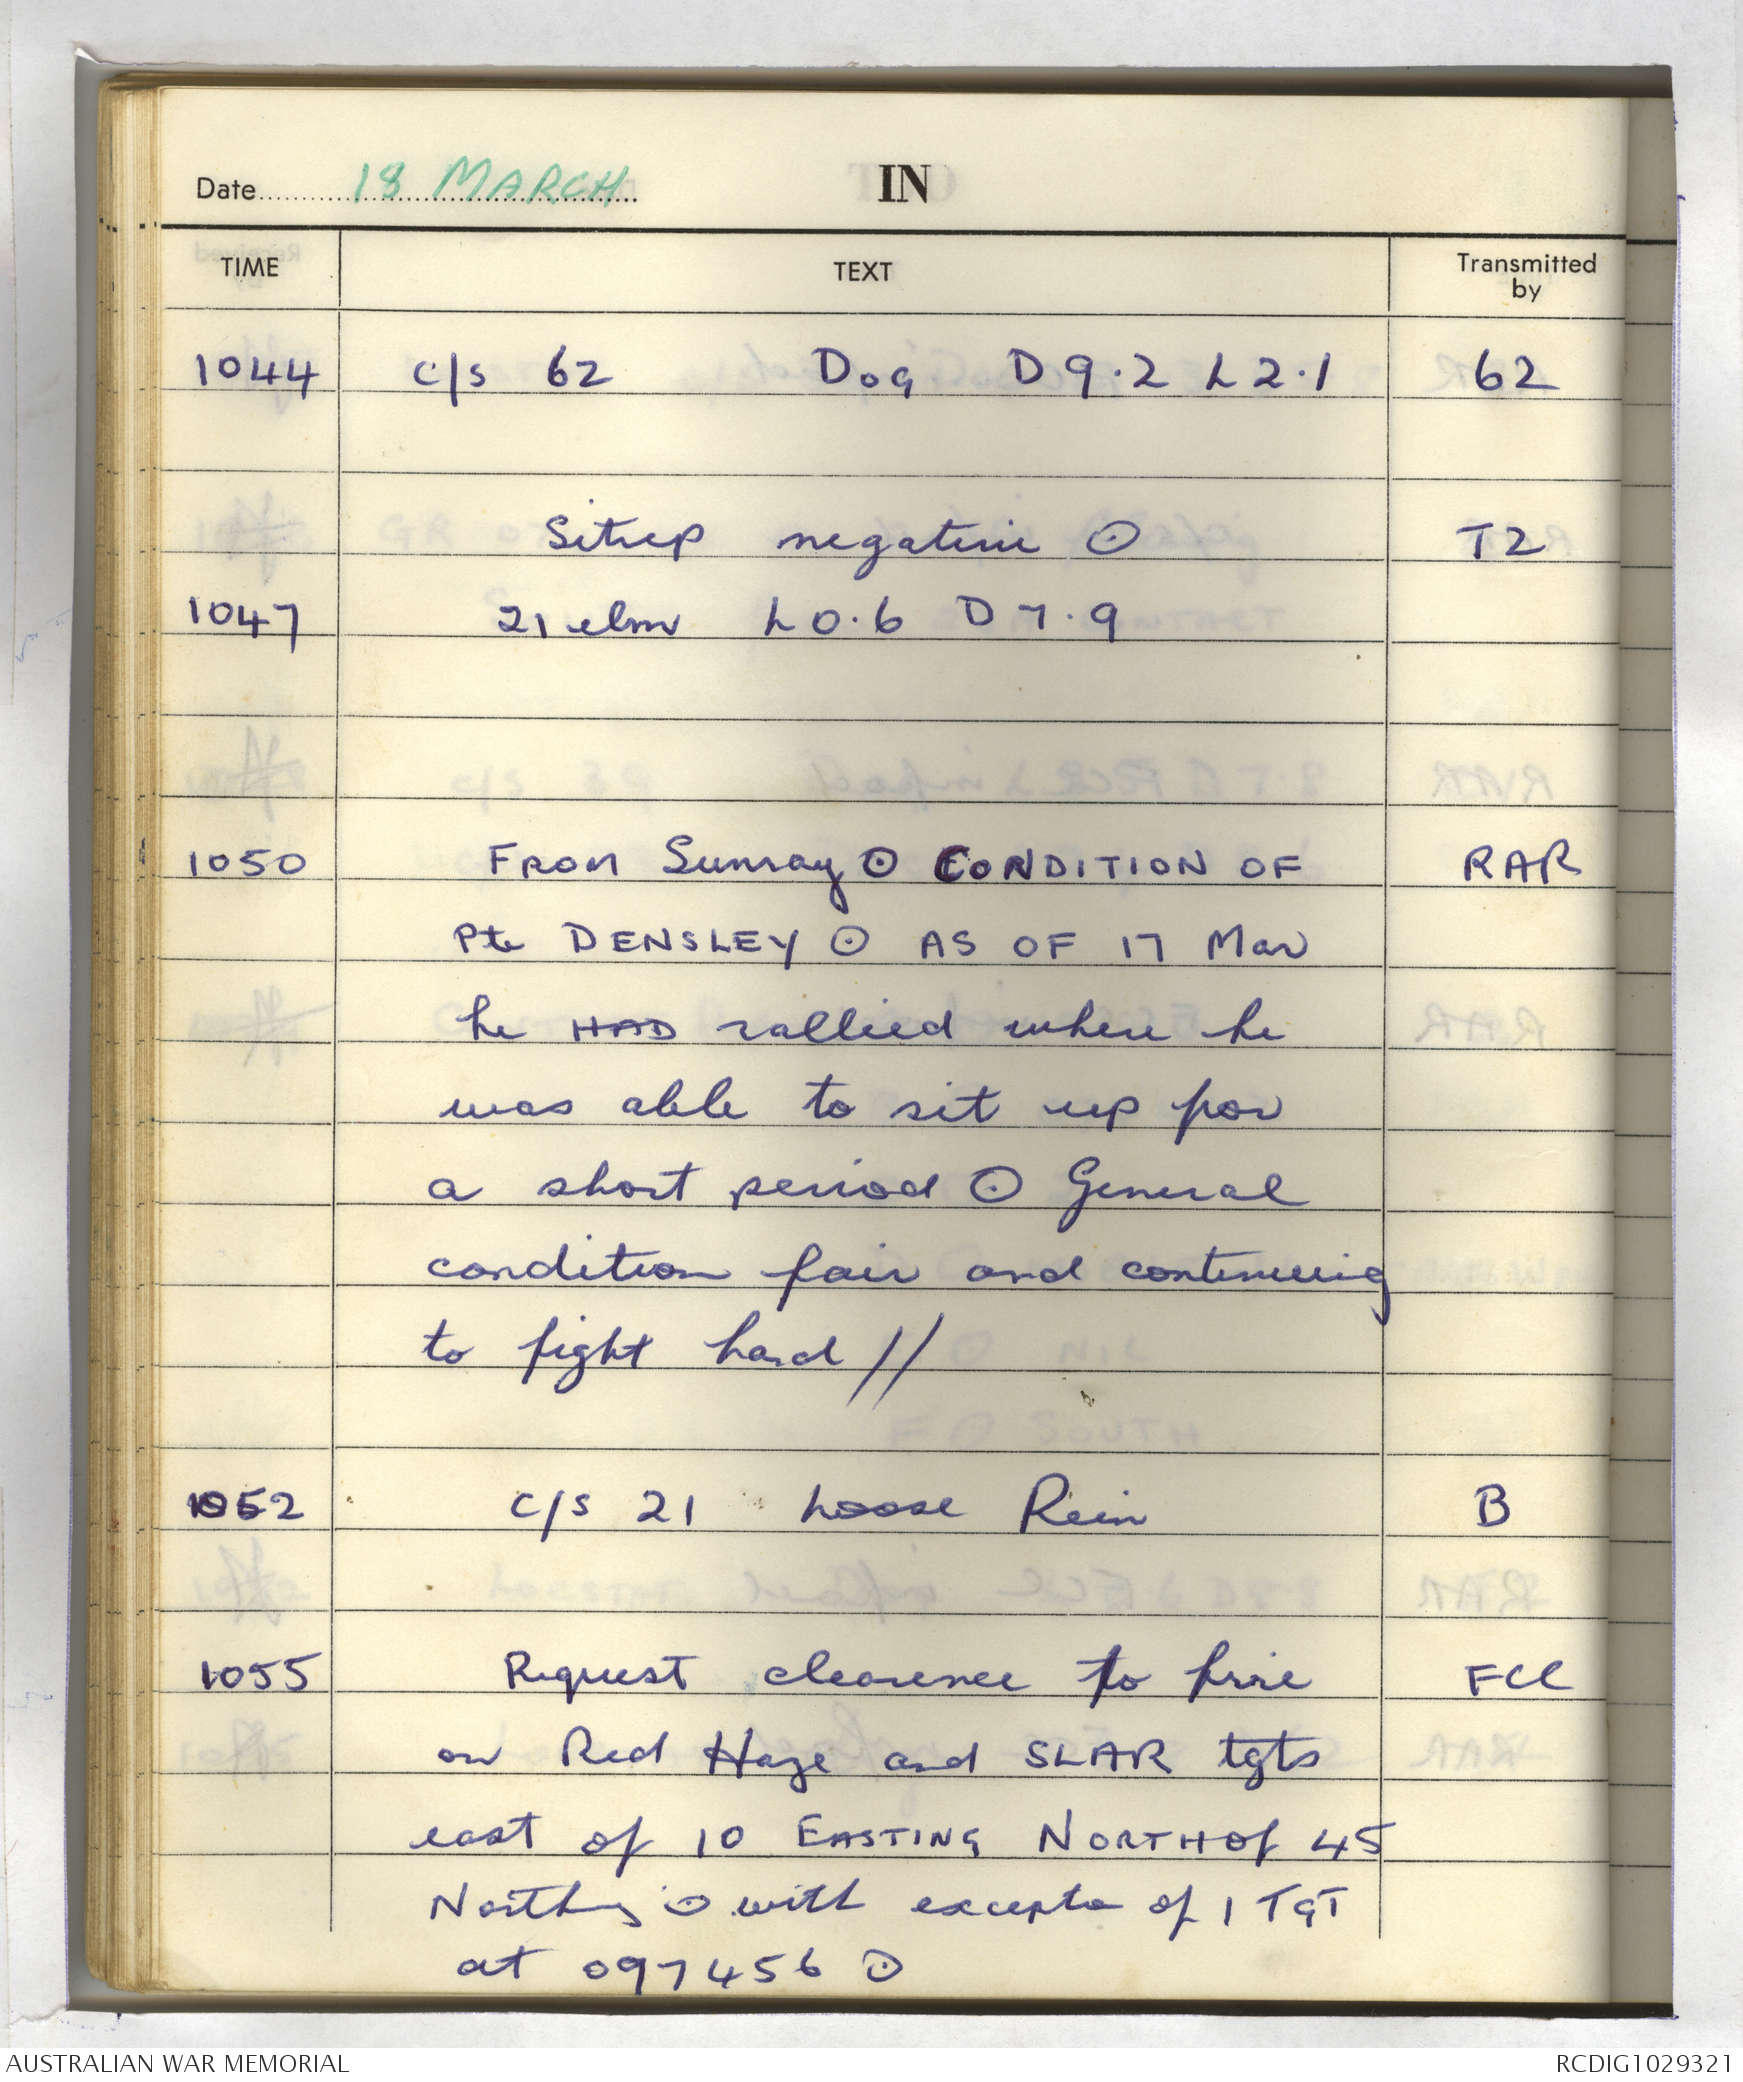 Date 18 MARCH IN
TIME TEXT Transmitted by
1044 c/s 62 Dog D 9.2 L 2.1 62
Sitrep negative ⊙ T2
1047 21 elm L 0.6 D 7.9
1050 FROM Sunray ⊙ CONDITION OF RAR
Pte DENSLEY ⊙ AS OF 17 Mar
he HAD rallied where he
was able to sit up for
a short period ⊙ General
condition fair and continuing
to fight hard //
1052 c/s 21 Loose Rein B
1055 Request clearence to fire FCC
on Red Haze and SLAR tgts
east of 10 EASTING NORTH of 45
Northing ⊙ with exceptn of 1 TGT
at 097456 ⊙
AUSTRALIAN WAR MEMORIAL RCDIG1029321